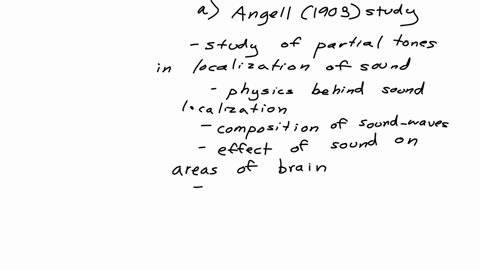 a) Angell (1903) study
- study of partial tones
in localization of sound
- physics behind sound
localization
- composition of sound-waves
- effect of sound on
areas of brain
-